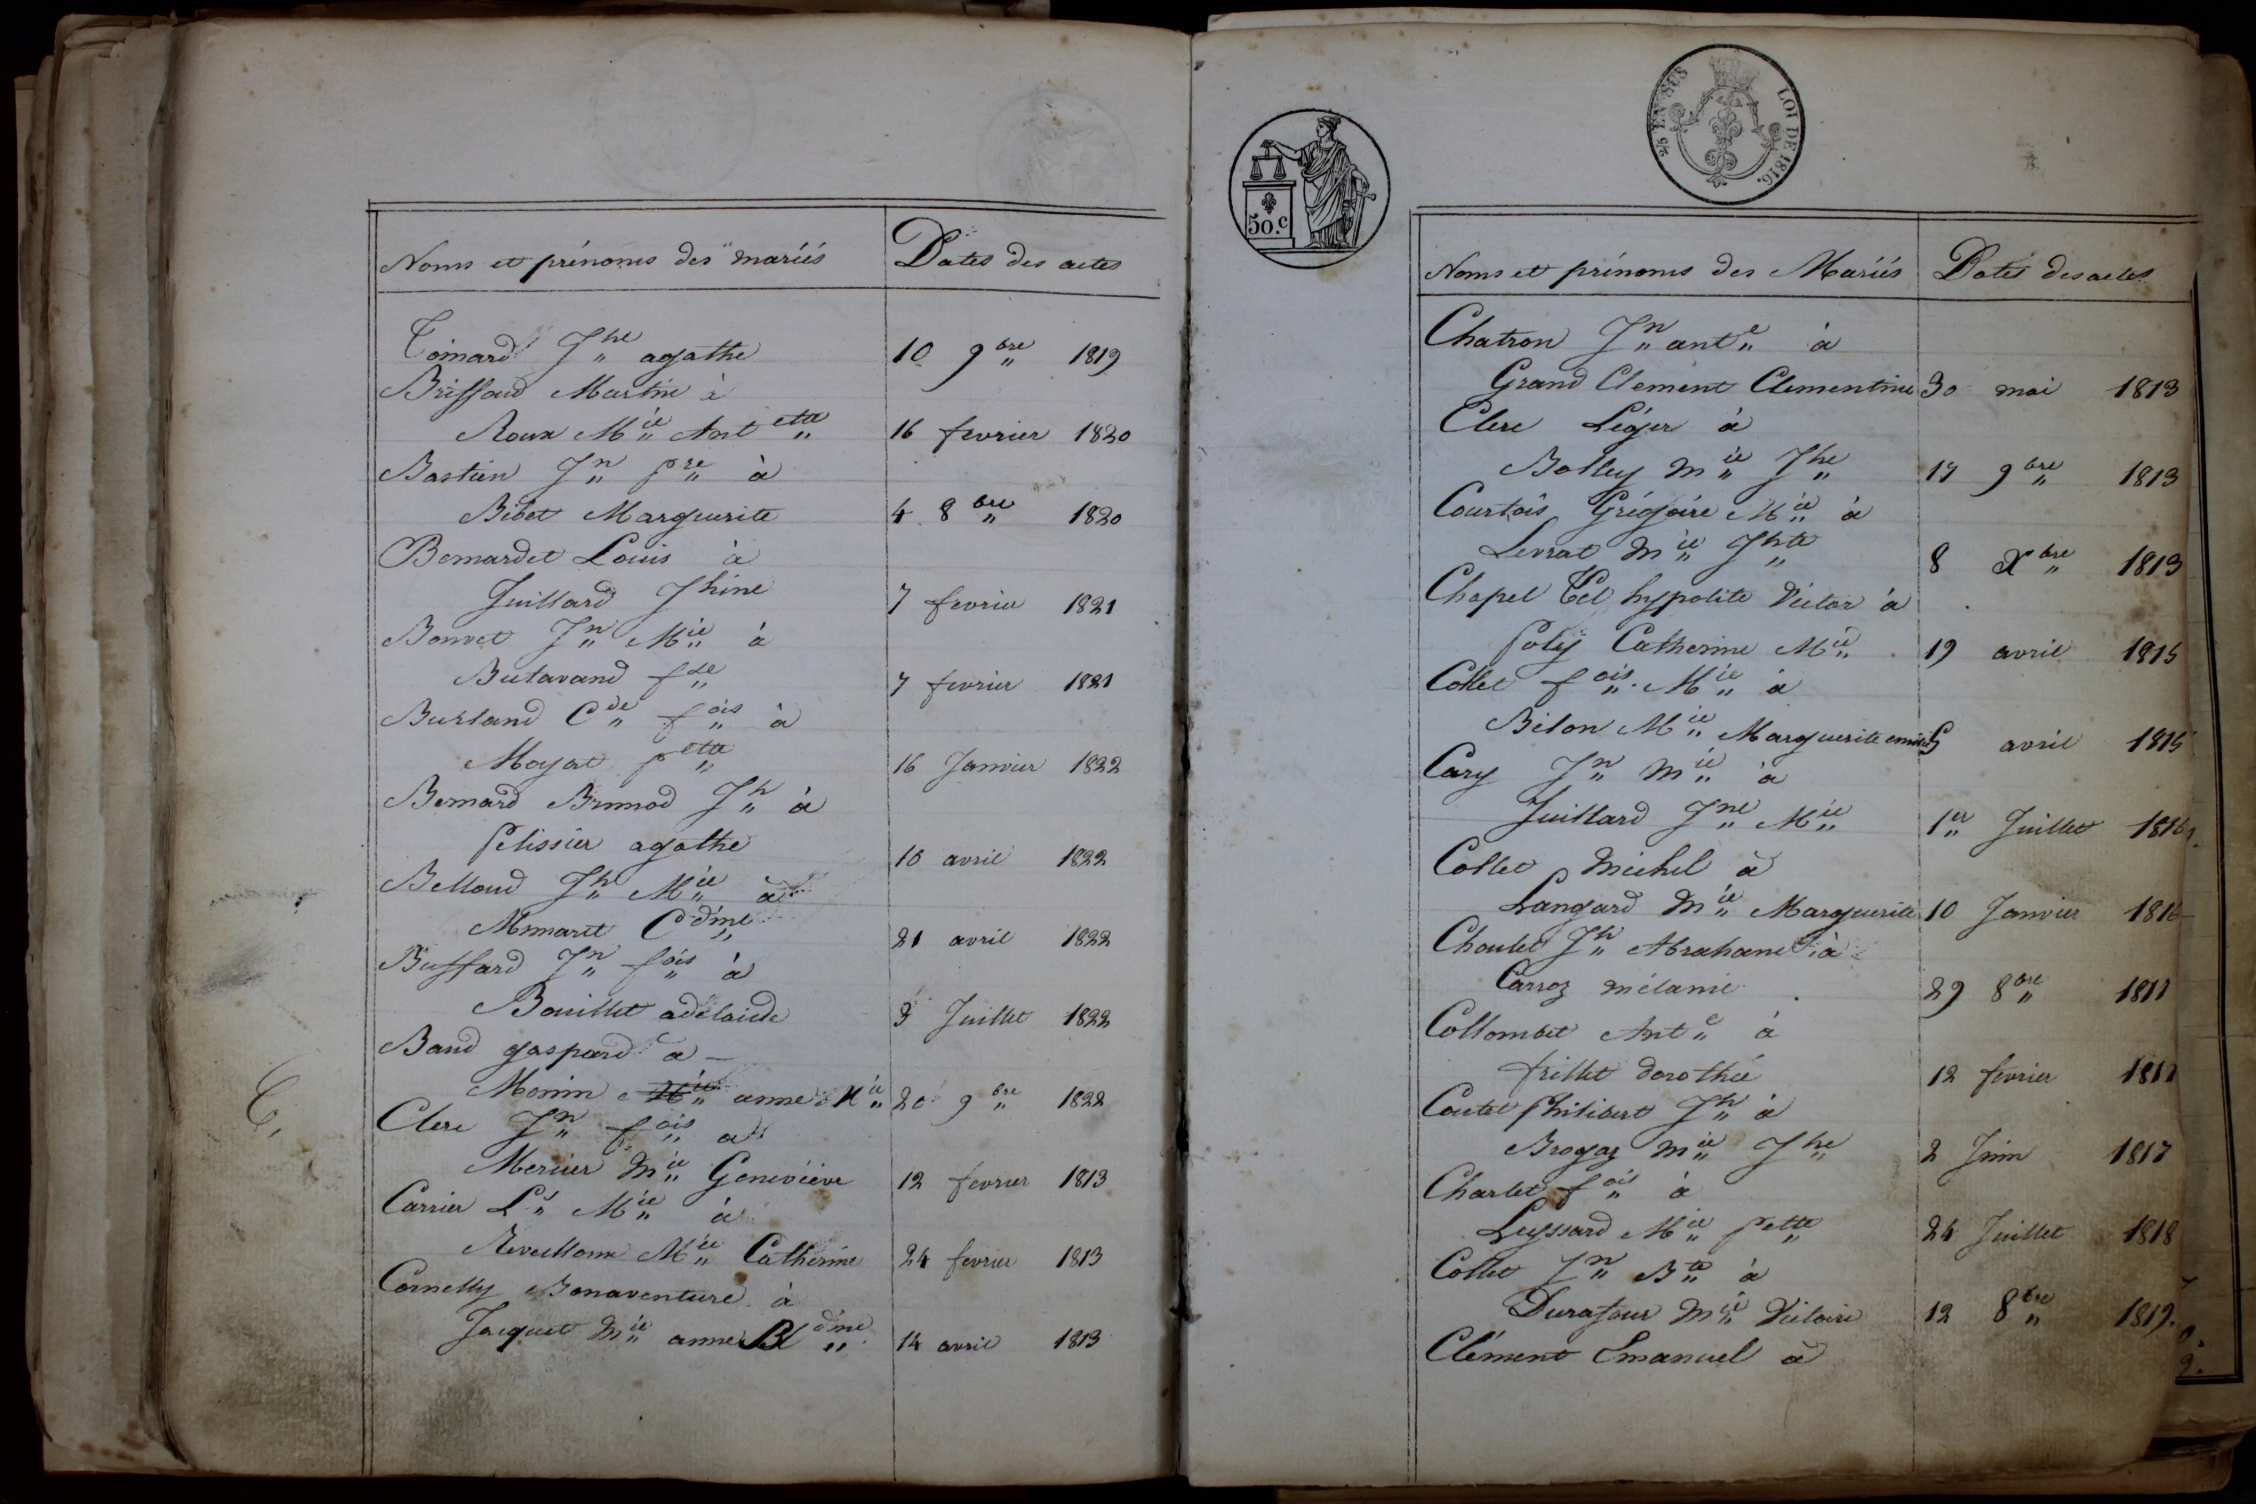 Noms et prénoms des mariés Dates des actes
Toinard Jhe agathe 10 9bre 1819
Briffaud Martin à
Roux Mie Antette 16 fevrier 1820
Bastien Jn pre à
Bibet Marguerite 4 8bre 1820
Bernardet Louis à
Juillard Jhine 7 fevrier 1821
Bonvet Jn Mie à
Butavand fse 7 fevrier 1821
Burland Cde fois à
Moyat pette 16 Janvier 1822
Bernard Brunod Jh à
Pelissier agathe 10 avril 1822
Belloud Jh Mie à
Monnaret Cdine 21 avril 1822
Buffard Jn fois à
Bouillet adelaide 3 Juillet 1822
Baud gaspard a
Monin Mie anne Mie 20 9bre 1822
C.
Clerc Jn fois a
Mercier Mie Geneviève 12 fevrier 1813
Carrier Ls Mie à
Reveilloux Mie Catherine 24 fevrier 1813
Cornelly Bonaventure à
Jacquet Mie anne Bl dine 14 avril 1813
25 EN SUS LOI DE 1816.
50.c
Noms et prénoms des Mariés Dates des actes
Chatron Jn ante à
Grand Clement Clementine 30 mai 1813
Clerc Léger à
Bolley Mie Jhe 17 9bre 1813
Courtois Grégoire Mie à
Levrat Mie Jhte 8 Xbre 1813
Chapel hypolite Victor à
Poly Catherine Mie 19 avril 1815
Collet fois Mie à
Bilon Mie Marguerite 5 avril 1815
Cary Jn Mie à
Juillard Jne Mie 1er Juillet 1816
Collet Michel à
Langard Mie Marguerite 10 Janvier 1816
Choulet Jh Abraham à
Carroz mélanie 29 8bre 1811
Collombet Ante à
frillet dorothée 12 fevrier 1811
Coutet Philibert Jh à
Brogaz Mie Jhe 2 Juin 1817
Charlet fois à
Luyssard Mie pette 24 Juillet 1818
Collet Jn Bte à
Durafour Mie Victoire 12 8bre 1819.
Clément Emanuel à